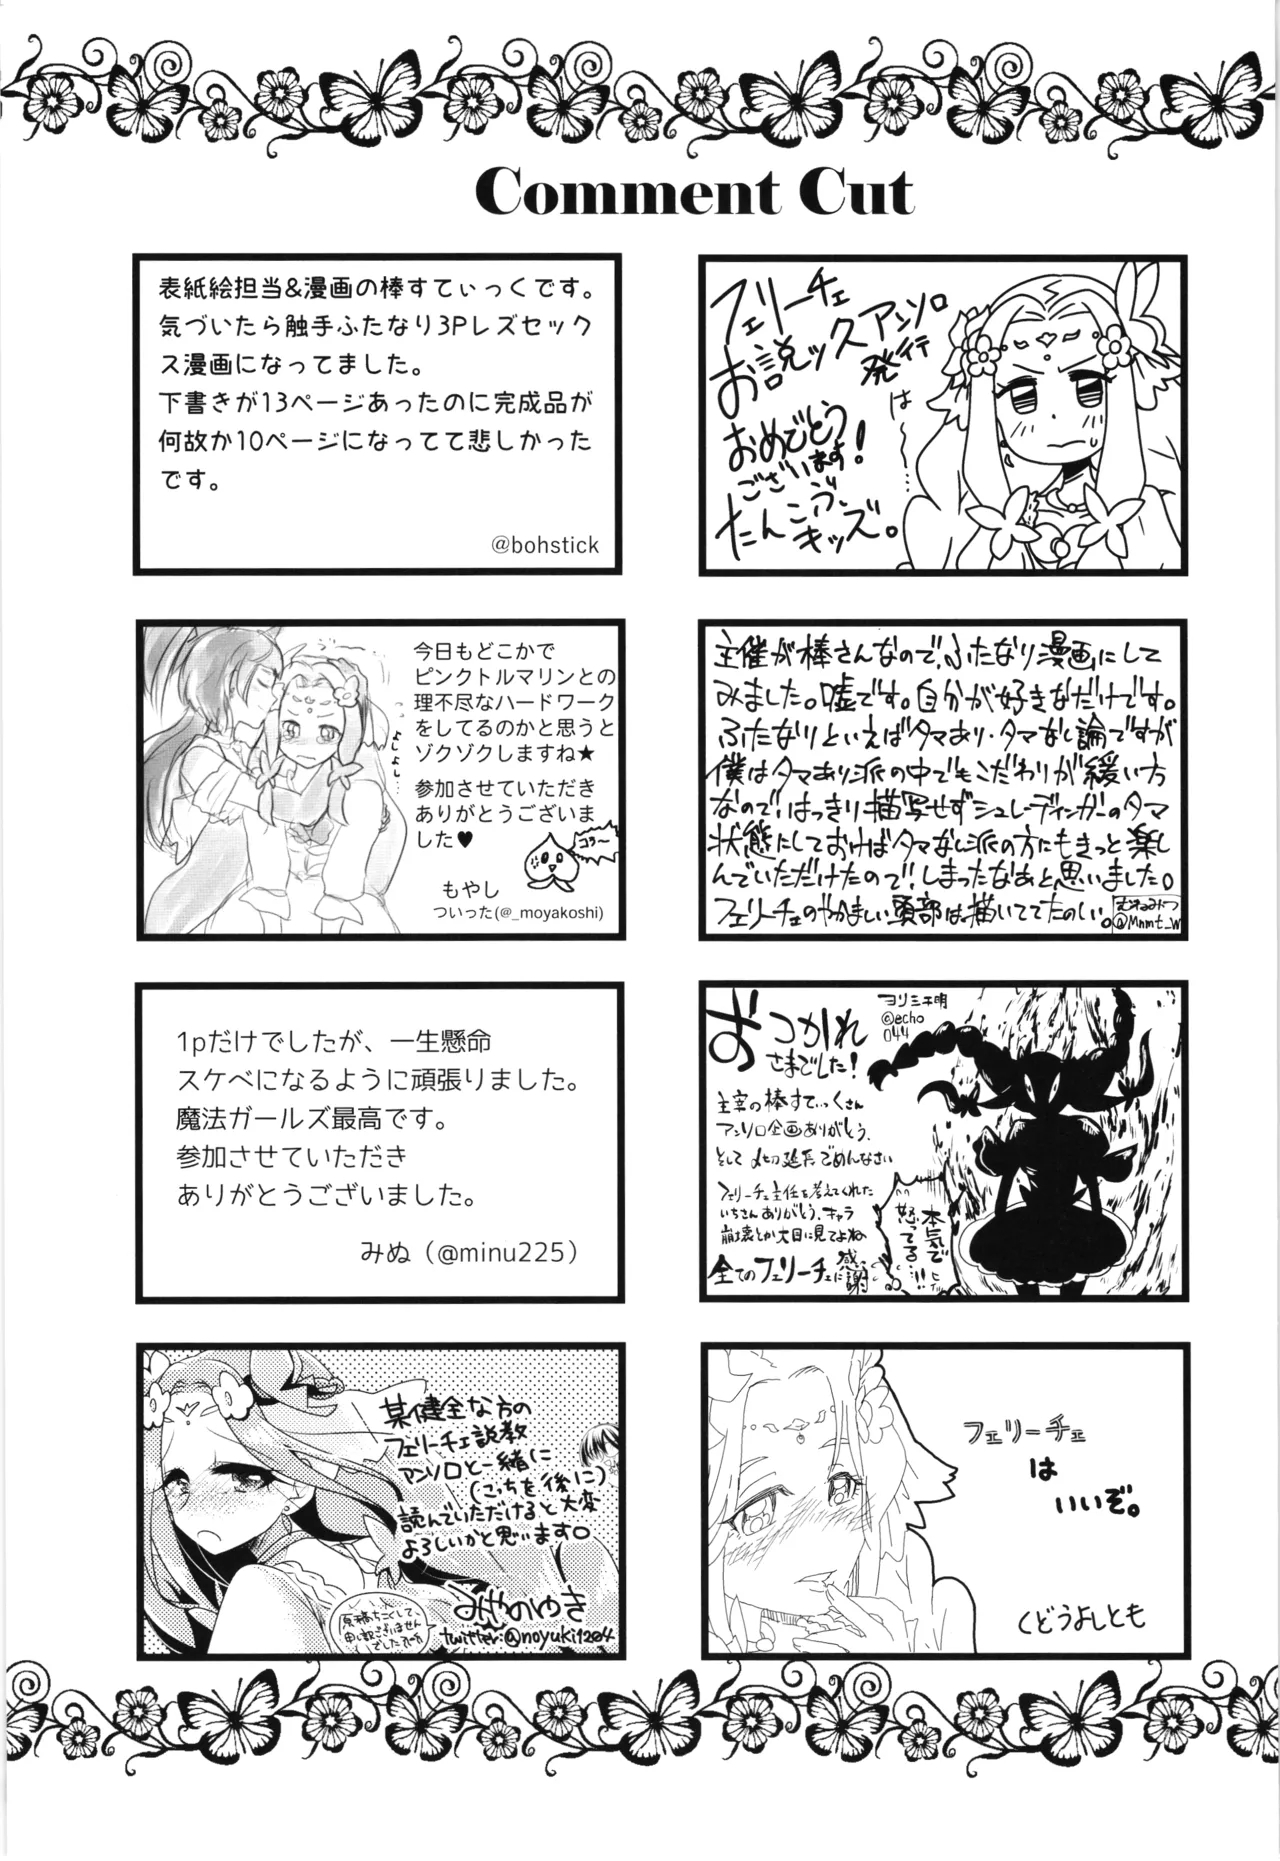 Comment Cut
表紙絵担当&漫画の棒すてぃっくです。
気づいたら触手ふたなり3Pレズセック
ス漫画になってました。
下書きが13ページあったのに完成品が
何故か10ページになってて悲しかった
です。
@bohstick
フェリーチェ
お説ックスアンソロ
発行
おめでとう
ございます!
たんこぶ
キッズ。
は〜…
今日もどこかで
ピンクトルマリンとの
理不尽なハードワーク
をしてるのかと思うと
ゾクゾクしますね★
参加させていただき
ありがとうございま
した♥
よしよし…
コラ〜
もやし
ついった(@_moyakoshi)
主催が棒さんなので、ふたなり漫画にして
みました。嘘です。自分が好きなだけです。
ふたなりといえばタマあり・タマなし論ですが
僕はタマあり派の中でもこだわりが緩い方
なので、はっきり描写せずシュレーディンガーのタマ
状態にしておけばタマなし派の方にもきっと楽し
んでいただけたので!しまったなぁと思いました。
フェリーチェのやかましい頭部は描いててたのしい。
むねみつ
@Mnmt_W
1pだけでしたが、一生懸命
スケベになるように頑張りました。
魔法ガールズ最高です。
参加させていただき
ありがとうございました。
みぬ(@minu225)
おつかれ
さまでした!
ヨリミチ明
@echo
044
主宰の棒すてぃっくさん
アンソロ企画ありがとう、
そして〆切延長ごめんなさい
フェリーチェ主任を考えてくれた
いちさんありがとう、キャラ
崩壊とか大目に見てよね
全てのフェリーチェに感謝
本気で
怒ってる…!!
ヒィッ
某健全な方の
フェリーチェ説教
アンソロと一緒に
(こっちを後に)
読んでいただけると大変
よろしいかと思います。
みやのゆき
twitter:@noyuki1204
原稿ちこくして、
申し訳ございません
でした
フェリーチェ
は
いいぞ。
くどうよしとも